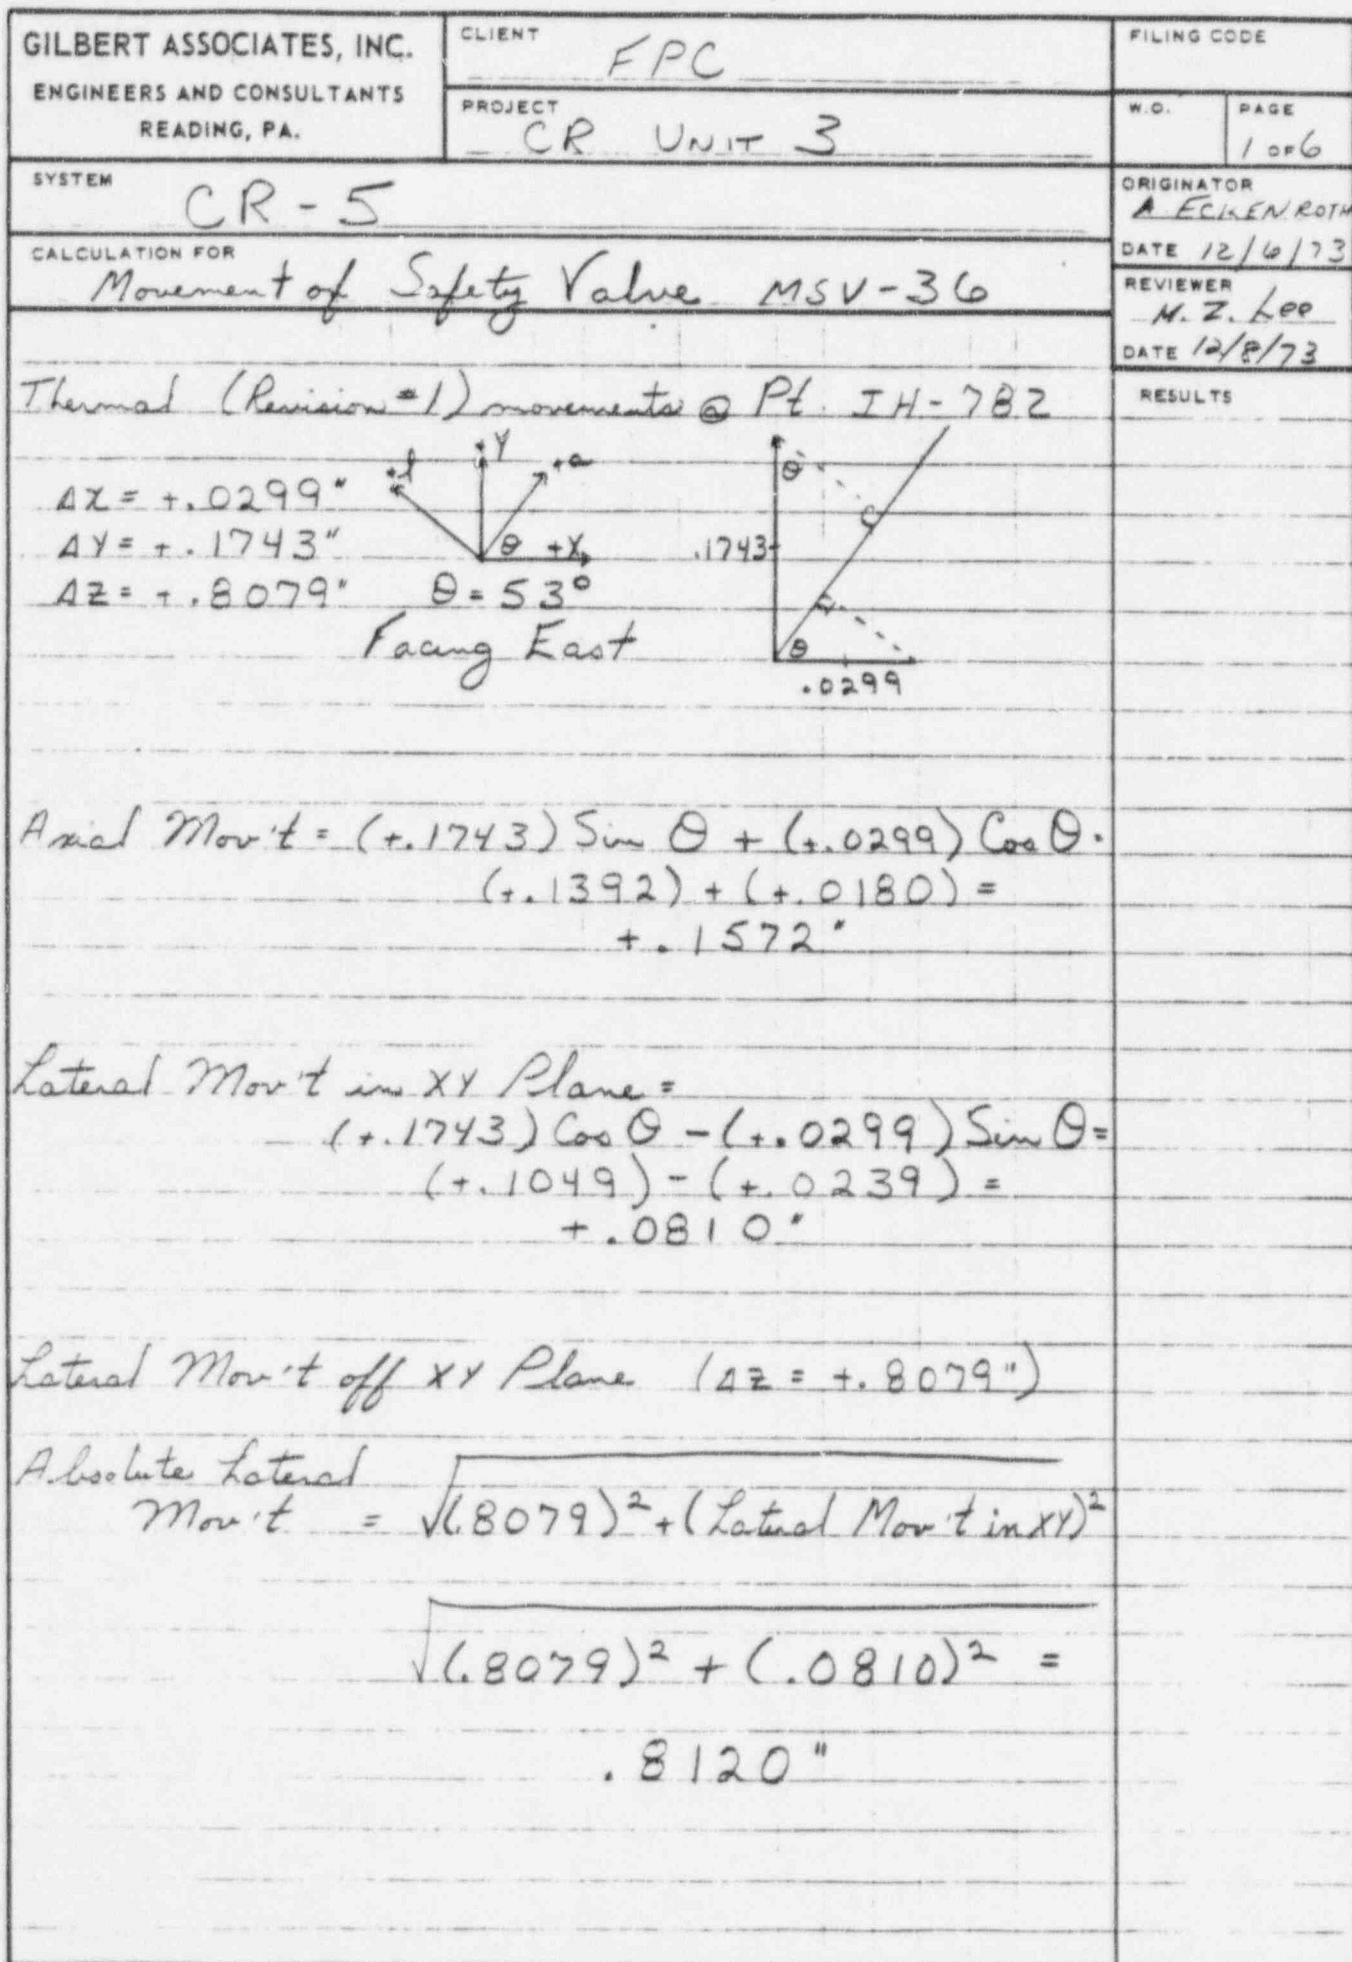 GILBERT ASSOCIATES, INC.
ENGINEERS AND CONSULTANTS
READING, PA.
CLIENT
FPC
PROJECT
CR UNIT 3
FILING CODE
W.O.
PAGE
1 OF 6
SYSTEM
CR-5
ORIGINATOR
A. ECKENROTH
DATE 12/6/73
CALCULATION FOR
Movement of Safety Valve MSV-36
REVIEWER
M. Z. Lee
DATE 12/8/73
RESULTS
Thermal (Revision #1) movements @ Pt. IH-782
ΔX = +.0299"
ΔY = +.1743"
ΔZ = +.8079"
+l
+Y
+a
θ +X
θ = 53°
Facing East
θ
.1743
θ
.0299
Axial Mov't = (+.1743) Sin θ + (+.0299) Cos θ =
(+.1392) + (+.0180) =
+.1572"
Lateral Mov't in XY Plane =
(+.1743) Cos θ - (+.0299) Sin θ =
(+.1049) - (+.0239) =
+.0810"
Lateral Mov't off XY Plane (ΔZ = +.8079")
Absolute Lateral
Mov't = √(.8079)² + (Lateral Mov't in XY)²
√(.8079)² + (.0810)² =
.8120"